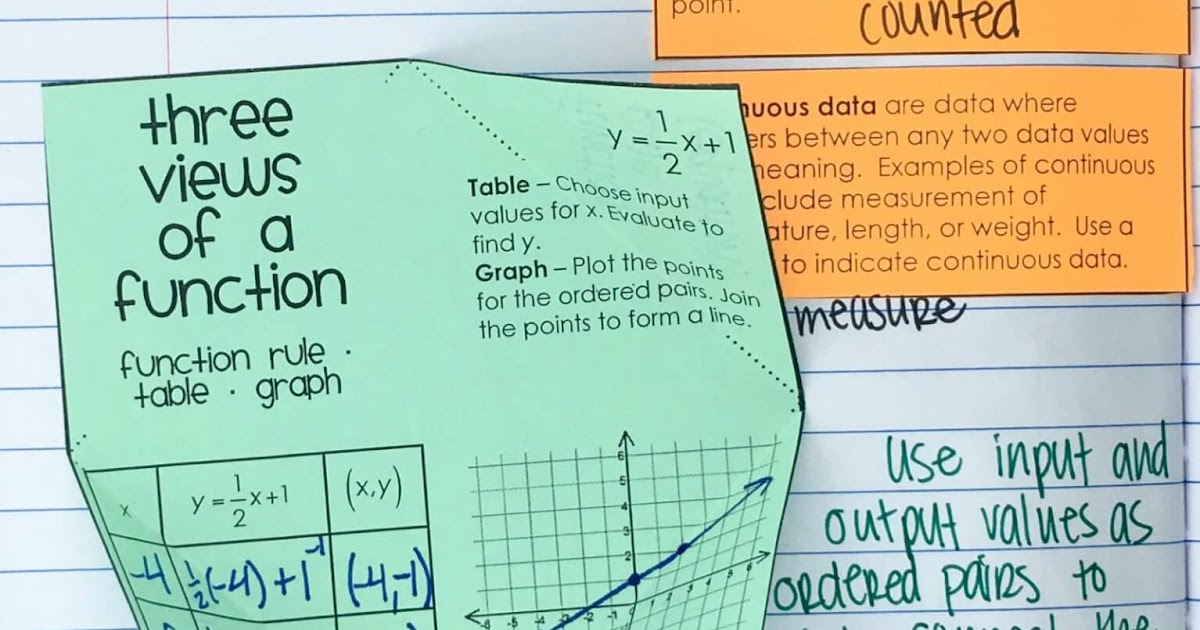 point.
counted
three
views
of a
function
function rule ·
table · graph
y = 1/2 x + 1
Table – Choose input
values for x. Evaluate to
find y.
Graph – Plot the points
for the ordered pairs. Join
the points to form a line.
nuous data are data where
ers between any two data values
meaning. Examples of continuous
clude measurement of
ature, length, or weight. Use a
to indicate continuous data.
measure
x y = 1/2 x + 1 (x,y)
-4 1/2(-4) + 1 -1 (-4,-1)
6
5
4
3
2
-6 -5 -4 -2 -1
use input and
output values as
ordered pairs to